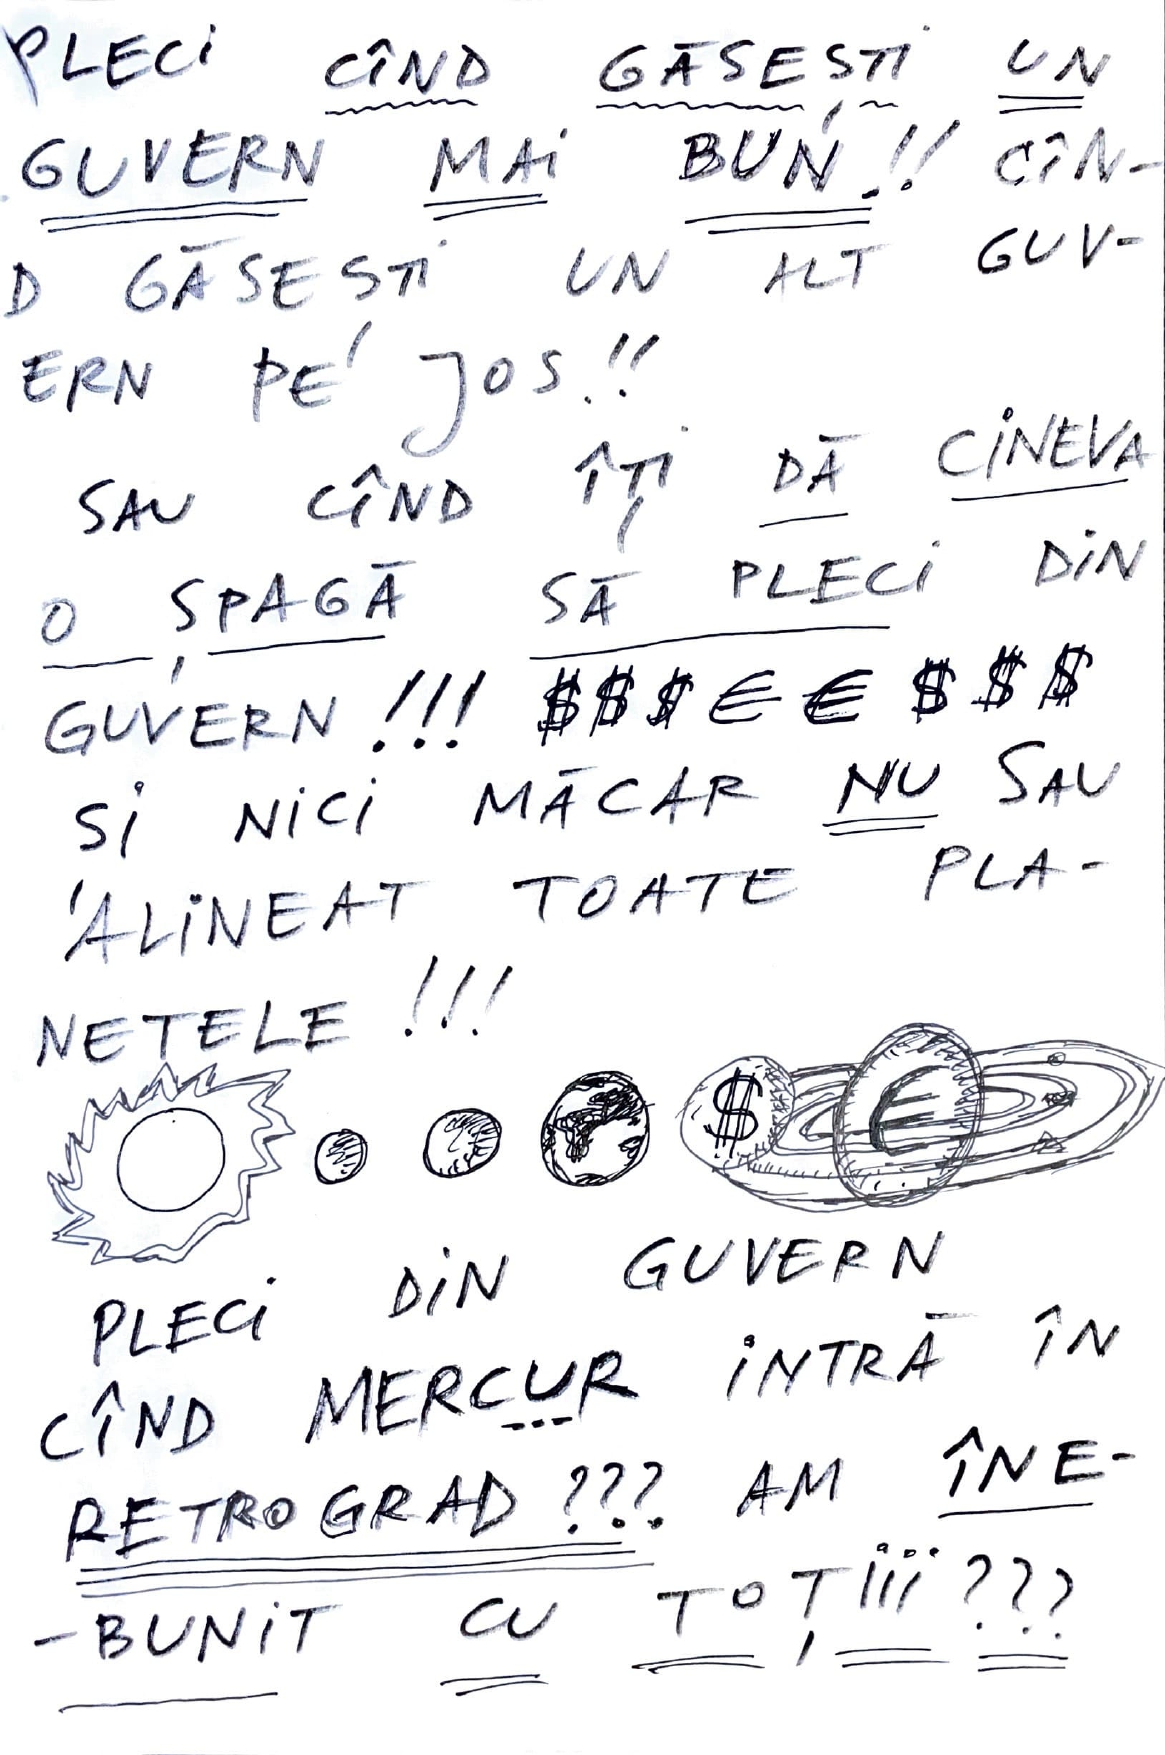 PLECI CÎND GĂSEȘTI UN
GUVERN MAI BUN!! CÎN-
D GĂSEȘTI UN ALT GUV-
ERN PE JOS!!
SAU CÎND ÎȚI DĂ CINEVA
O ȘPAGĂ SĂ PLECI DIN
GUVERN!!! $$$€€$$$
SI NICI MĂCAR NU SAU
ALINEAT TOATE PLA-
NETELE!!!
$ €
PLECI DIN GUVERN
CÎND MERCUR INTRĂ ÎN
RETROGRAD??? AM ÎNE-
-BUNIT CU TOȚIII???